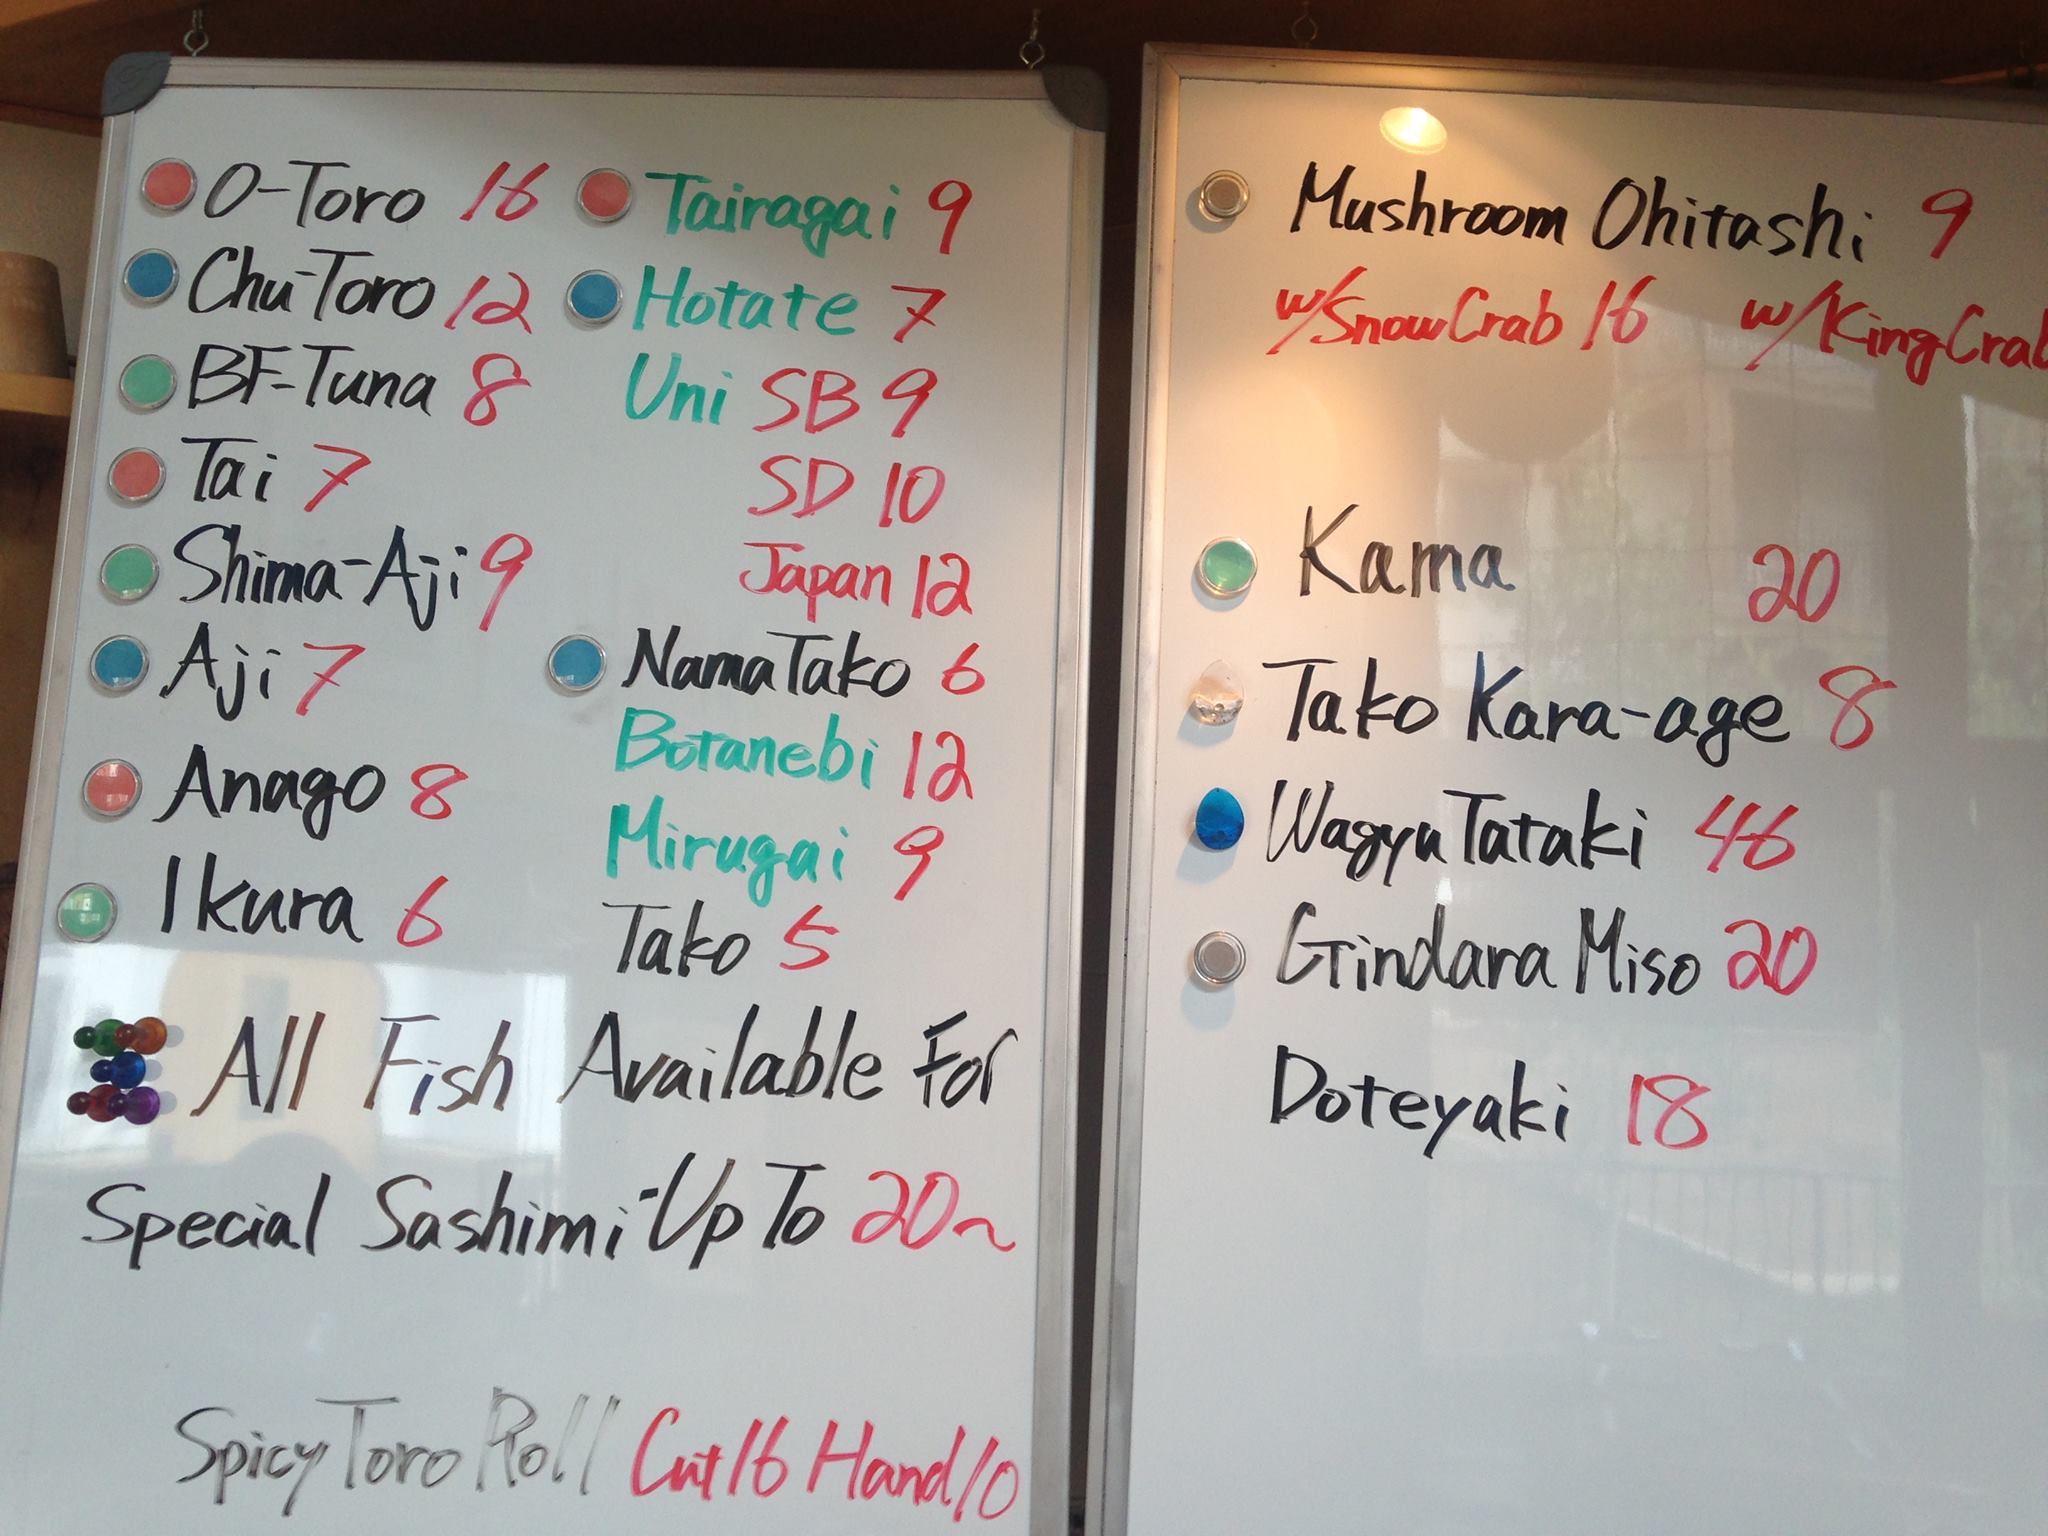 O-Toro 16
Chu-Toro 12
BF-Tuna 8
Tai 7
Shima-Aji 9
Aji 7
Anago 8
Ikura 6
Tairagai 9
Hotate 7
Uni SB 9
SD 10
Japan 12
Nama Tako 6
Botanebi 12
Mirugai 9
Tako 5
All Fish Available For
Special Sashimi-Up To 20~
Spicy Toro Roll Cut 16 Hand 10
Mushroom Ohitashi 9
w/Snow Crab 16 w/King Crab
Kama 20
Tako Kara-age 8
Wagyu Tataki 46
Gindara Miso 20
Doteyaki 18